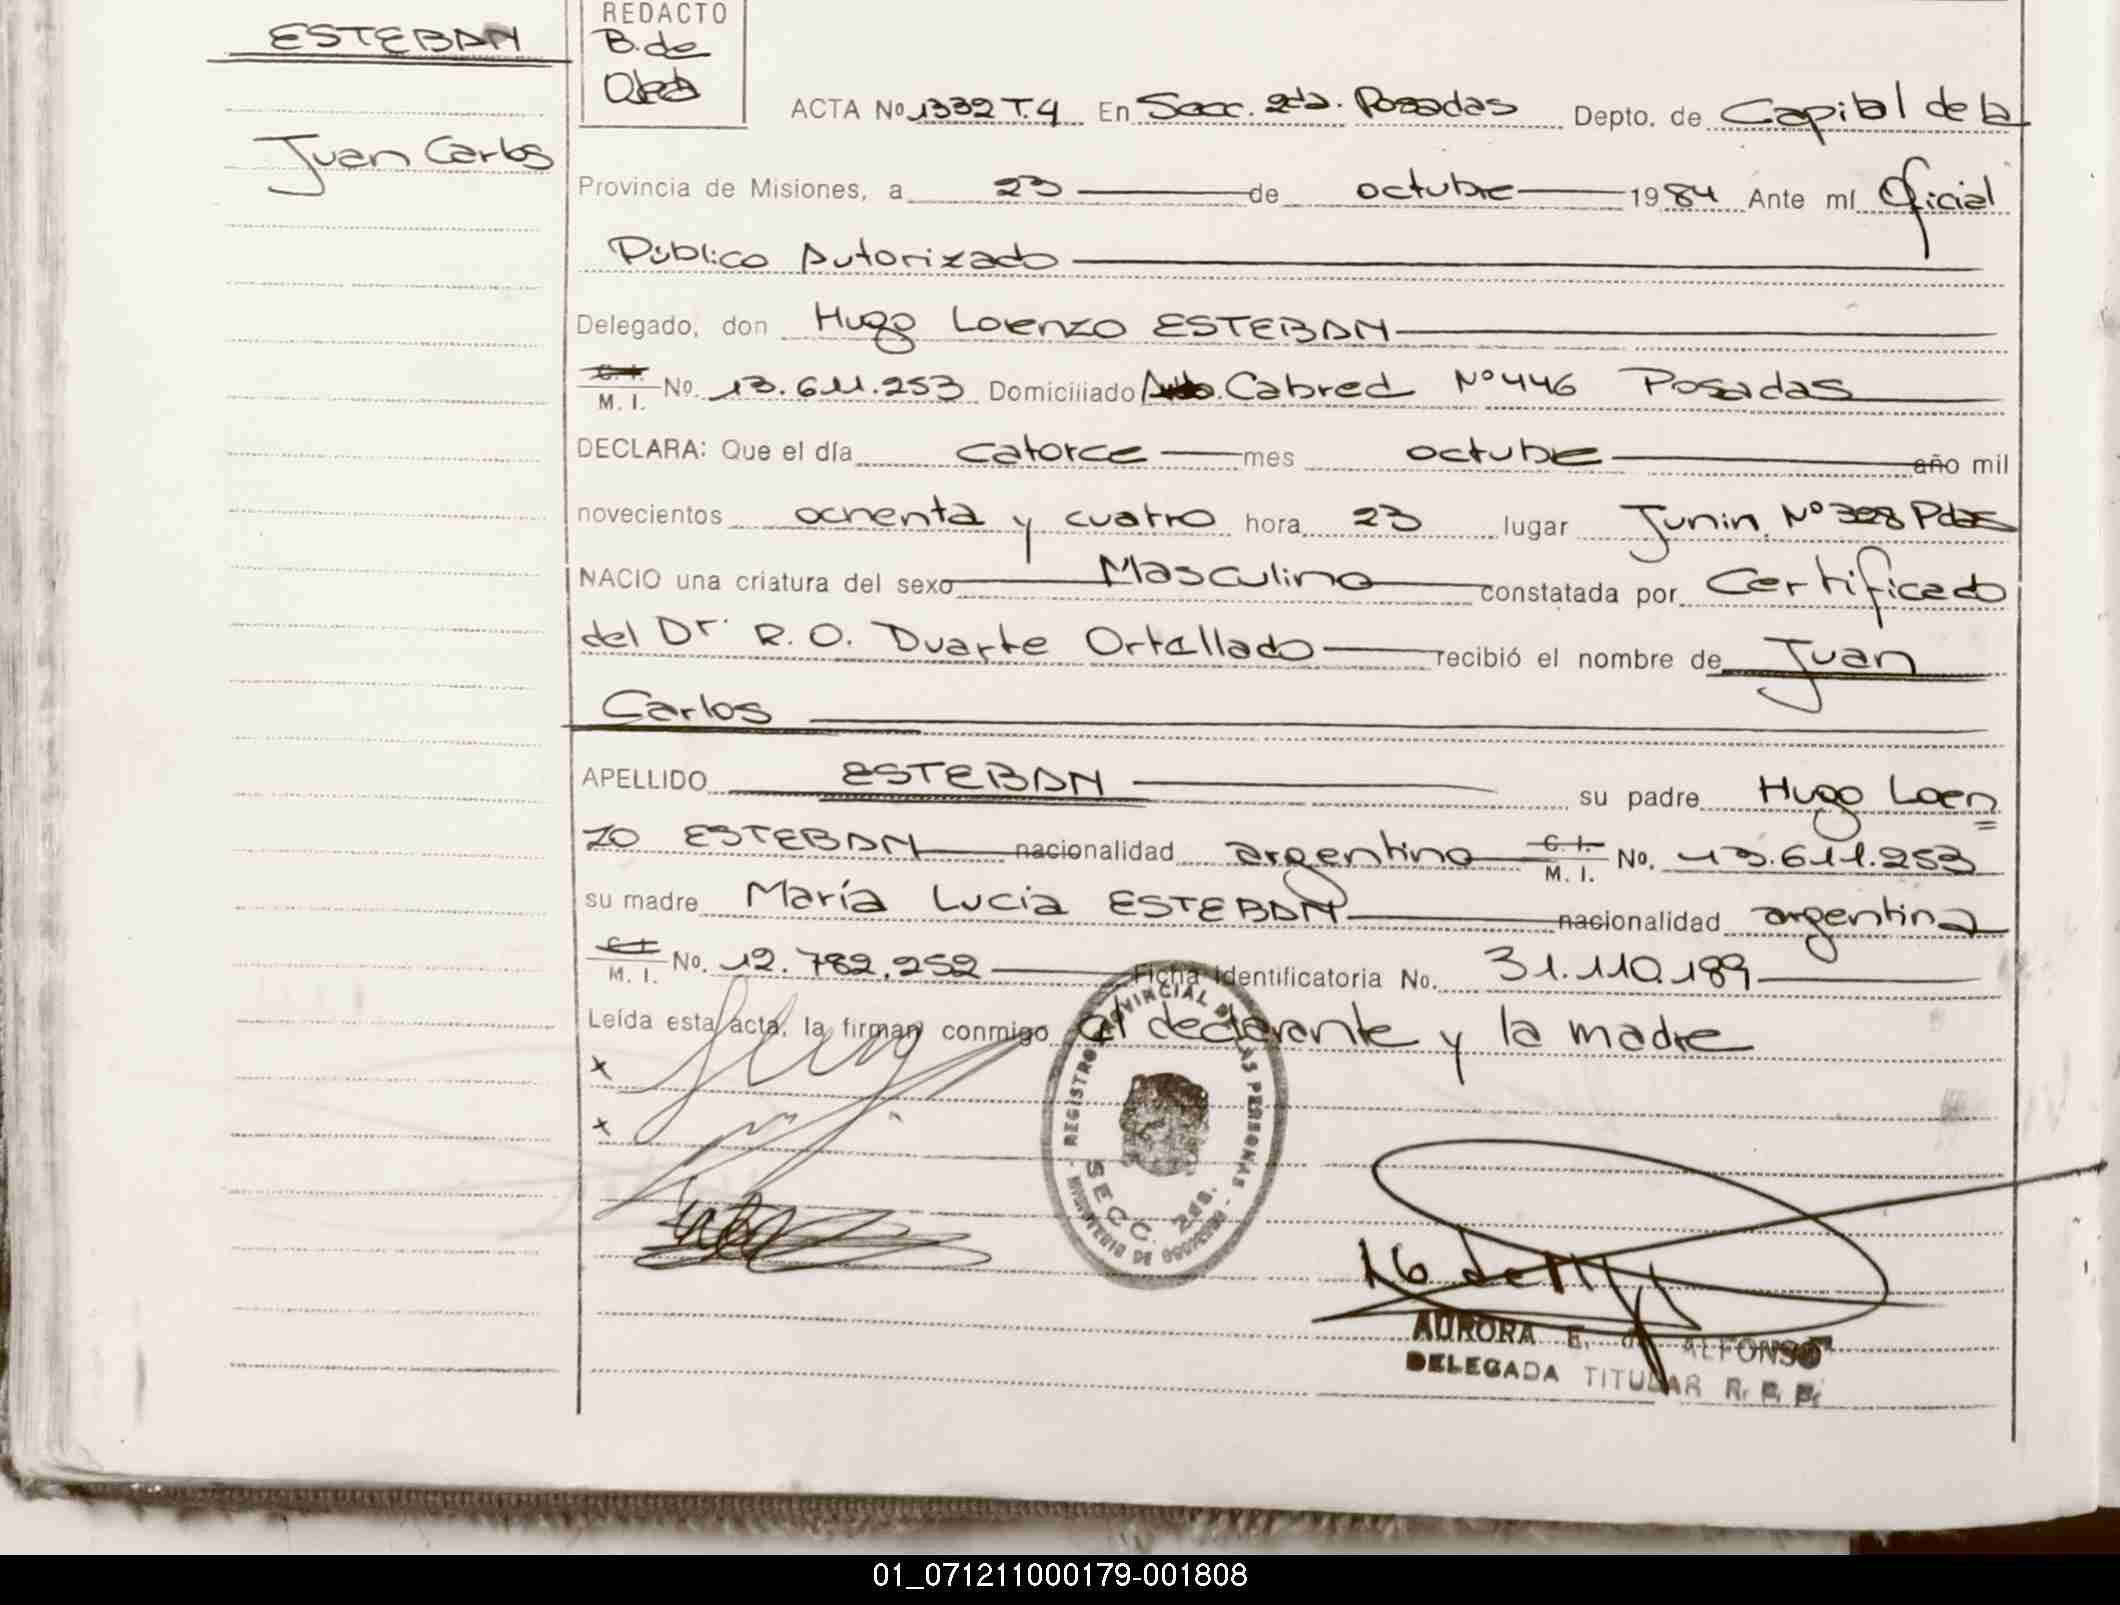 ESTEBAN
Juan Carlos
REDACTO
B. de
ACTA No 1332 T.4 En Secc. 2da. Posadas Depto. de Capital de la
Provincia de Misiones, a 23 de octubre 1984 Ante mí Oficial
Público Autorizado
Delegado, don Hugo Loenzo ESTEBAN
C. I.
M. I. No. 13.611.253 Domiciliado Cabred Nº 446 Posadas
DECLARA: Que el día catorce mes octubre año mil
novecientos ochenta y cuatro hora 23 lugar Junin Nº 328 Pdas
NACIO una criatura del sexo Masculino constatada por Certificado
del Dr. R. O. Duarte Ortellado recibió el nombre de Juan
Carlos
APELLIDO ESTEBAN su padre Hugo Loen
zo ESTEBAN nacionalidad argentino C. I. M. I. No. 13.611.253
su madre María Lucia ESTEBAN nacionalidad argentina
C. I. M. I. No. 12.782.252 Ficha Identificatoria No. 31.110.189
Leída esta acta, la firman conmigo el declarante y la madre
x
x
REGISTRO PROVINCIAL DE LAS PERSONAS - MINISTERIO DE GOBIERNO -
SECC. 2da.
AURORA E. de ALFONSO
DELEGADA TITULAR R. P. P.
01_071211000179-001808